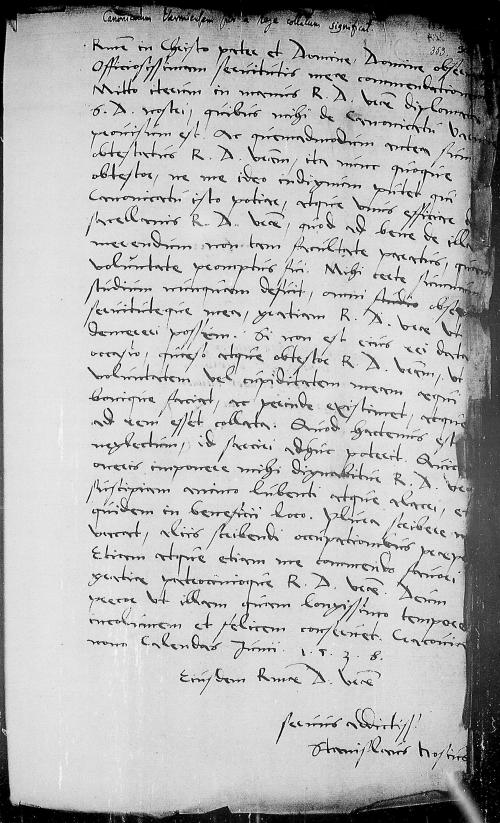 Canonicatum Varmiensem per a rege collatum significat
Rme in Christo pater et Domine, Domine obser
Officiosissimam servitutis mee commendationem
Mitto iterum in manus R. D. vre diplomata
S. D. nostri, quibus mihi de Canonicatu Varm
provisum est. Ac quemadmodum antea sum
obtestatus R. D. vram, ita nunc quoque
obtestor, ne me ideo indignum putet qui
Canonicatu isto potiar, atque unus efficiar
sacellanis R. D. vre, quod ad bene de illa
merendum non tam facultate paratus, quam
voluntate promptus fui. Mihi certe
studium nunquam defuit, omni studio obse
servituteque mea, gratiam R. D. vre ut
demereri possem. Si non est eius rei data
occasio, queso atque obtestor R. D. vram, ut
voluntatem vel cupiditatem meam equi
bonique faciat, ac perinde existimet, atque
ad rem esset collata. Quod hactenus est
neglectum, id sarciri adhuc poterit. Quic
oneris imponere mihi dignabitur R. D. vra
suscipiam animo lubenti atque alacri, et
quidem in beneficii loco. Plura scribere n
vacat, aliis scribendi occupationibus
Etiam atque etiam me commendo favori
gratiae patrocinioque R. D. vre. Deum
precor ut illam quam longissimo tempore
incolumem et felicem conservet. Cracovie
nono Calendas Junii. 1. 5. 3. 8.
Eiusdem Rme D. vre
servus addictiss
Stanislaus Hosius